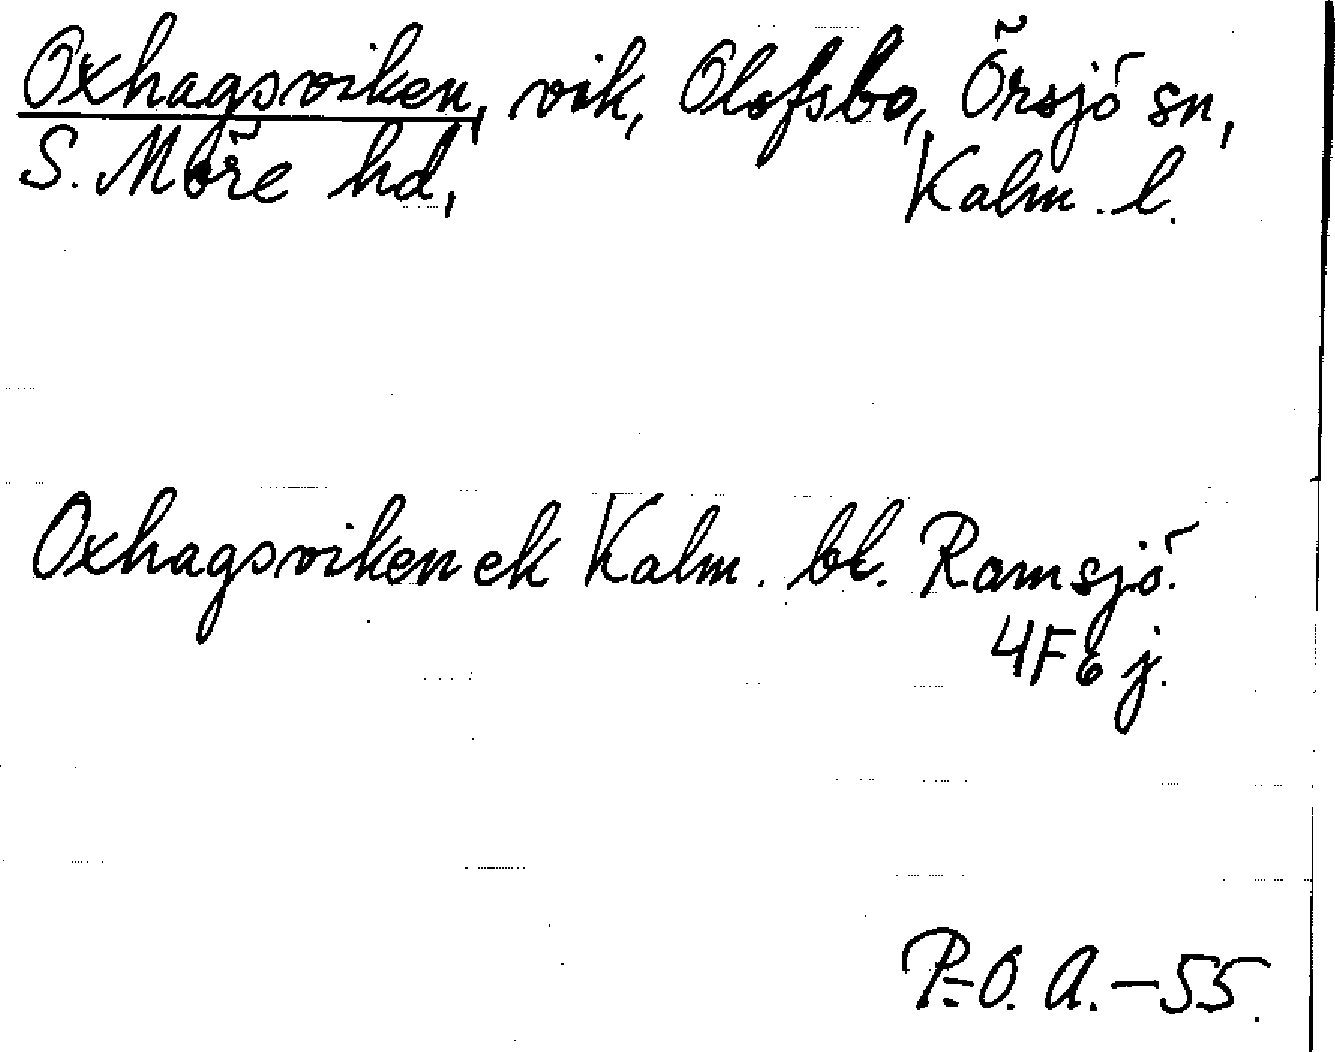 Oxhagsviken, vik, Olofsbo, Örsjö sn,
S. Möre hd, Kalm. l.
Oxhagsviken ek Kalm. bl. Ramsjö.
4F6j.
P.-O. A. - 55.